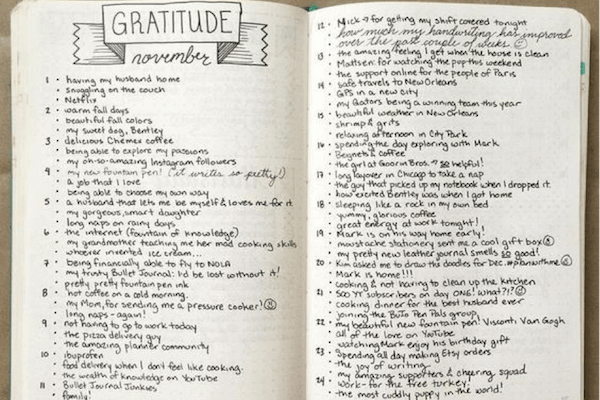 GRATITUDE
november
1 · having my husband home
· snuggling on the couch
· Netflix
2 · warm fall days
· beautiful fall colors
· my sweet dog, Bentley
3 · delicious Chemex coffee
· being able to explore my passions
· my oh-so-amazing Instagram followers
4 · my new fountain pen! (it writes so pretty!)
· a job that I love
· being able to choose my own way
5 · a husband that lets me be myself & loves me for it
· my gorgeous, smart daughter
· long naps on rainy days
6 · the internet (fountain of knowledge)
· my grandmother teaching me her mad cooking skills
· whoever invented ice cream...
7 · being financially able to fly to NOLA
· my trusty Bullet Journal: I'd be lost without it!
· pretty pretty fountain pen ink
8 · hot coffee on a cold morning.
· my Mom, for sending me a pressure cooker!
· long naps - again!
9 · not having to go to work today
· the pizza delivery guy
· the amazing planner community
10 · ibuprofen
· food delivery when I don't feel like cooking.
· the wealth of knowledge on YouTube
11 · Bullet Journal Junkies
· family!
12 · Mick → for getting my shift covered tonight
· how much my handwriting has improved
over the past couple of weeks
13 · the amazing feeling I get when the house is clean
· Mattsen: for watching the pup this weekend
· the support online for the people of Paris
14 · safe travels to New Orleans
· GPS in a new city
· my Gators being a winning team this year
15 · beautiful weather in New Orleans
· shrimp & grits
· relaxing afternoon in City Park
16 · spending the day exploring with Mark
· Beignets & coffee
· the girl at Goorin Bros. → so helpful!
17 · long layover in Chicago to take a nap
· the guy that picked up my notebook when I dropped it.
· how excited Bentley was when I got home
18 · sleeping like a rock in my own bed
· yummy, glorious coffee
· great energy at work tonight!
19 · Mark is on his way home early!
· moustache stationery sent me a cool gift box
· my pretty new leather journal smells so good!
20 · Kim asked me to draw the doodles for Dec. #planwithme
· Mark is home!!!
· cooking & not having to clean up the kitchen
21 · 500 YT subscribers on day ONE! What?!?
· cooking dinner for the best husband ever
· joining the BuJo Pen Pals group
22 · my beautiful new fountain pen! Visconti Van Gogh
· all of the love on YouTube
· watching Mark enjoy his birthday gift
23 · spending all day making Etsy orders
· the joy of writing
· my amazing supporters & cheering squad
24 · work - for the free turkey!
· the most cuddly puppy in the world!